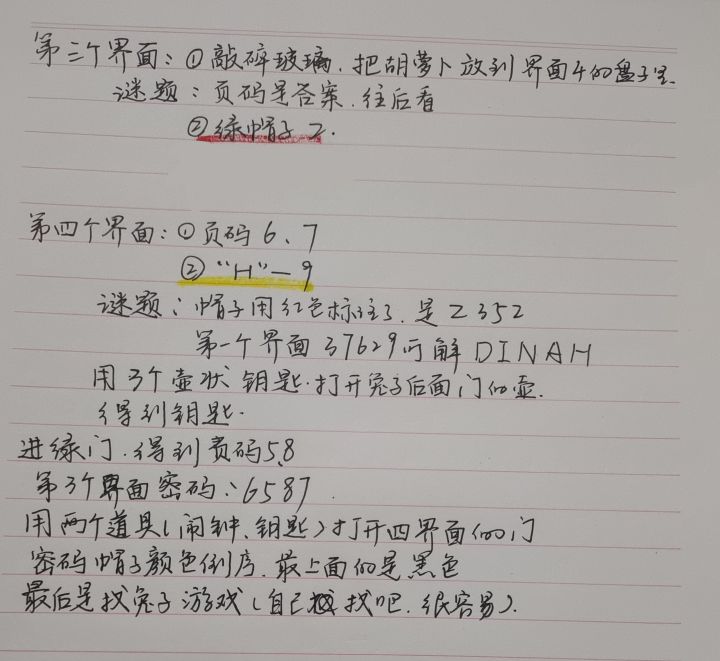 第三个界面：①敲碎玻璃.把胡萝卜放到界面4的盘子里.
谜题：页码是答案.往后看
②绿帽子2.
第四个界面：①页码6、7
②“H”—9
谜题：帽子用红色标注了.是2352
第一个界面37629可解DINAH
用3个壶状钥匙.打开兔子后面门的壶.
得到钥匙.
进绿门.得到页码5、8
第3个界面密码：6587
用两个道具(闹钟、钥匙)打开四界面的门
密码帽子颜色倒序.最上面的是黑色
最后是找兔子游戏(自己找吧.很容易).